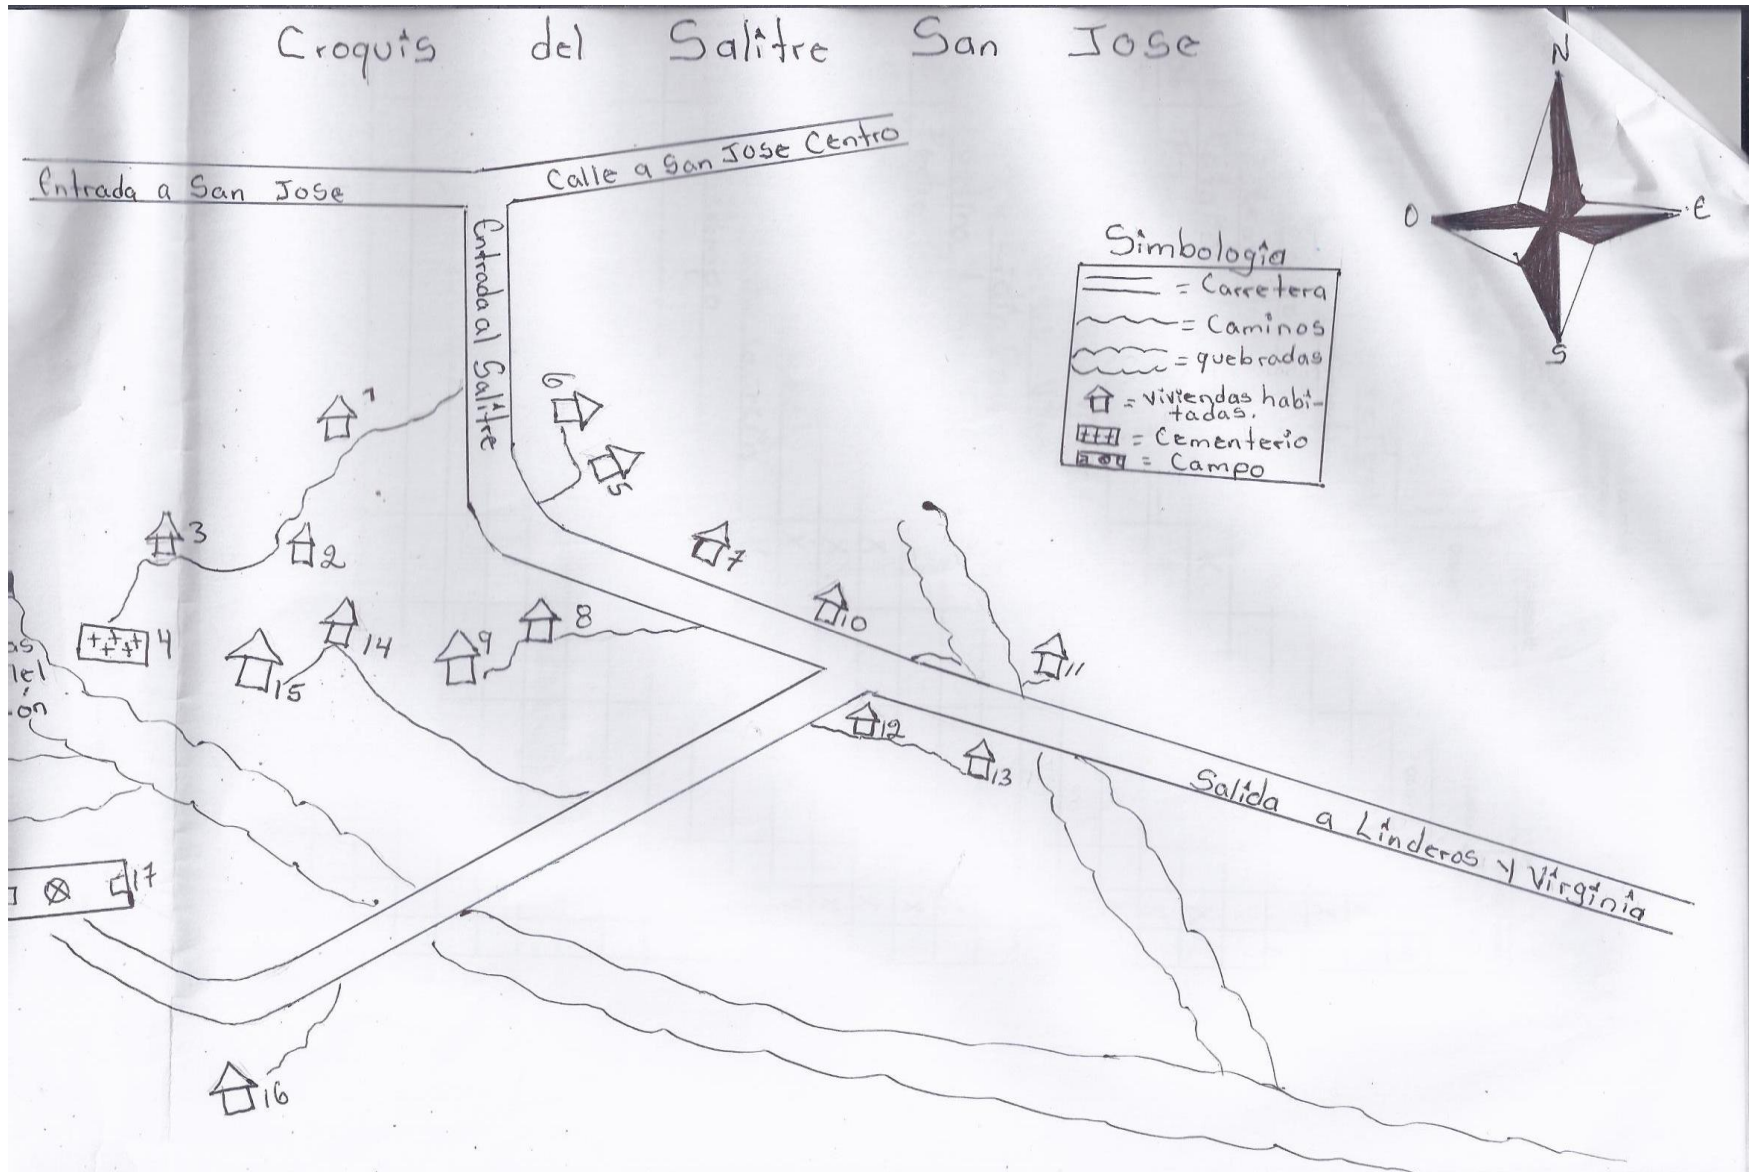 Croquis del Salitre San Jose
N
O
E
S
Entrada a San Jose
Calle a San Jose Centro
Entrada al Salitre
Simbología
= Carretera
= Caminos
= quebradas
= viviendas habi-
tadas.
= Cementerio
= Campo
1
2
3
4
5
6
7
8
9
10
11
12
13
14
15
16
17
as
del
ón
Salida a Linderos y Virginia